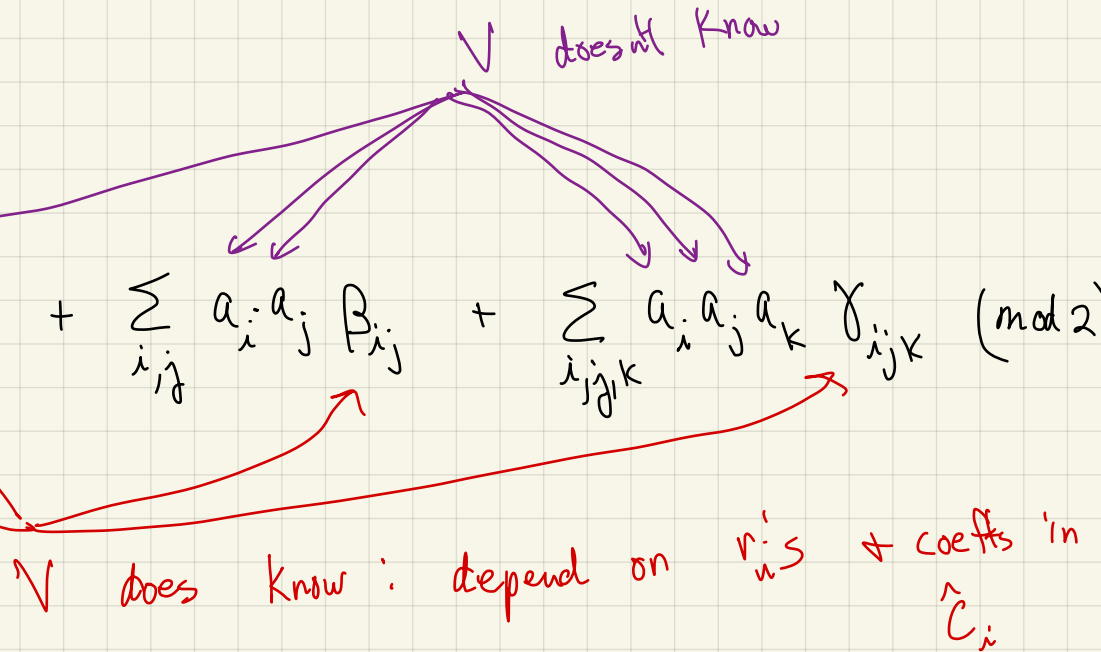 V doesn't know
+ ∑_{i,j} a_i a_j β_{ij} + ∑_{i,j,k} a_i a_j a_k γ_{ijk} (mod 2)
V does know : depend on r_i's + coeffs in
Ĉ_i